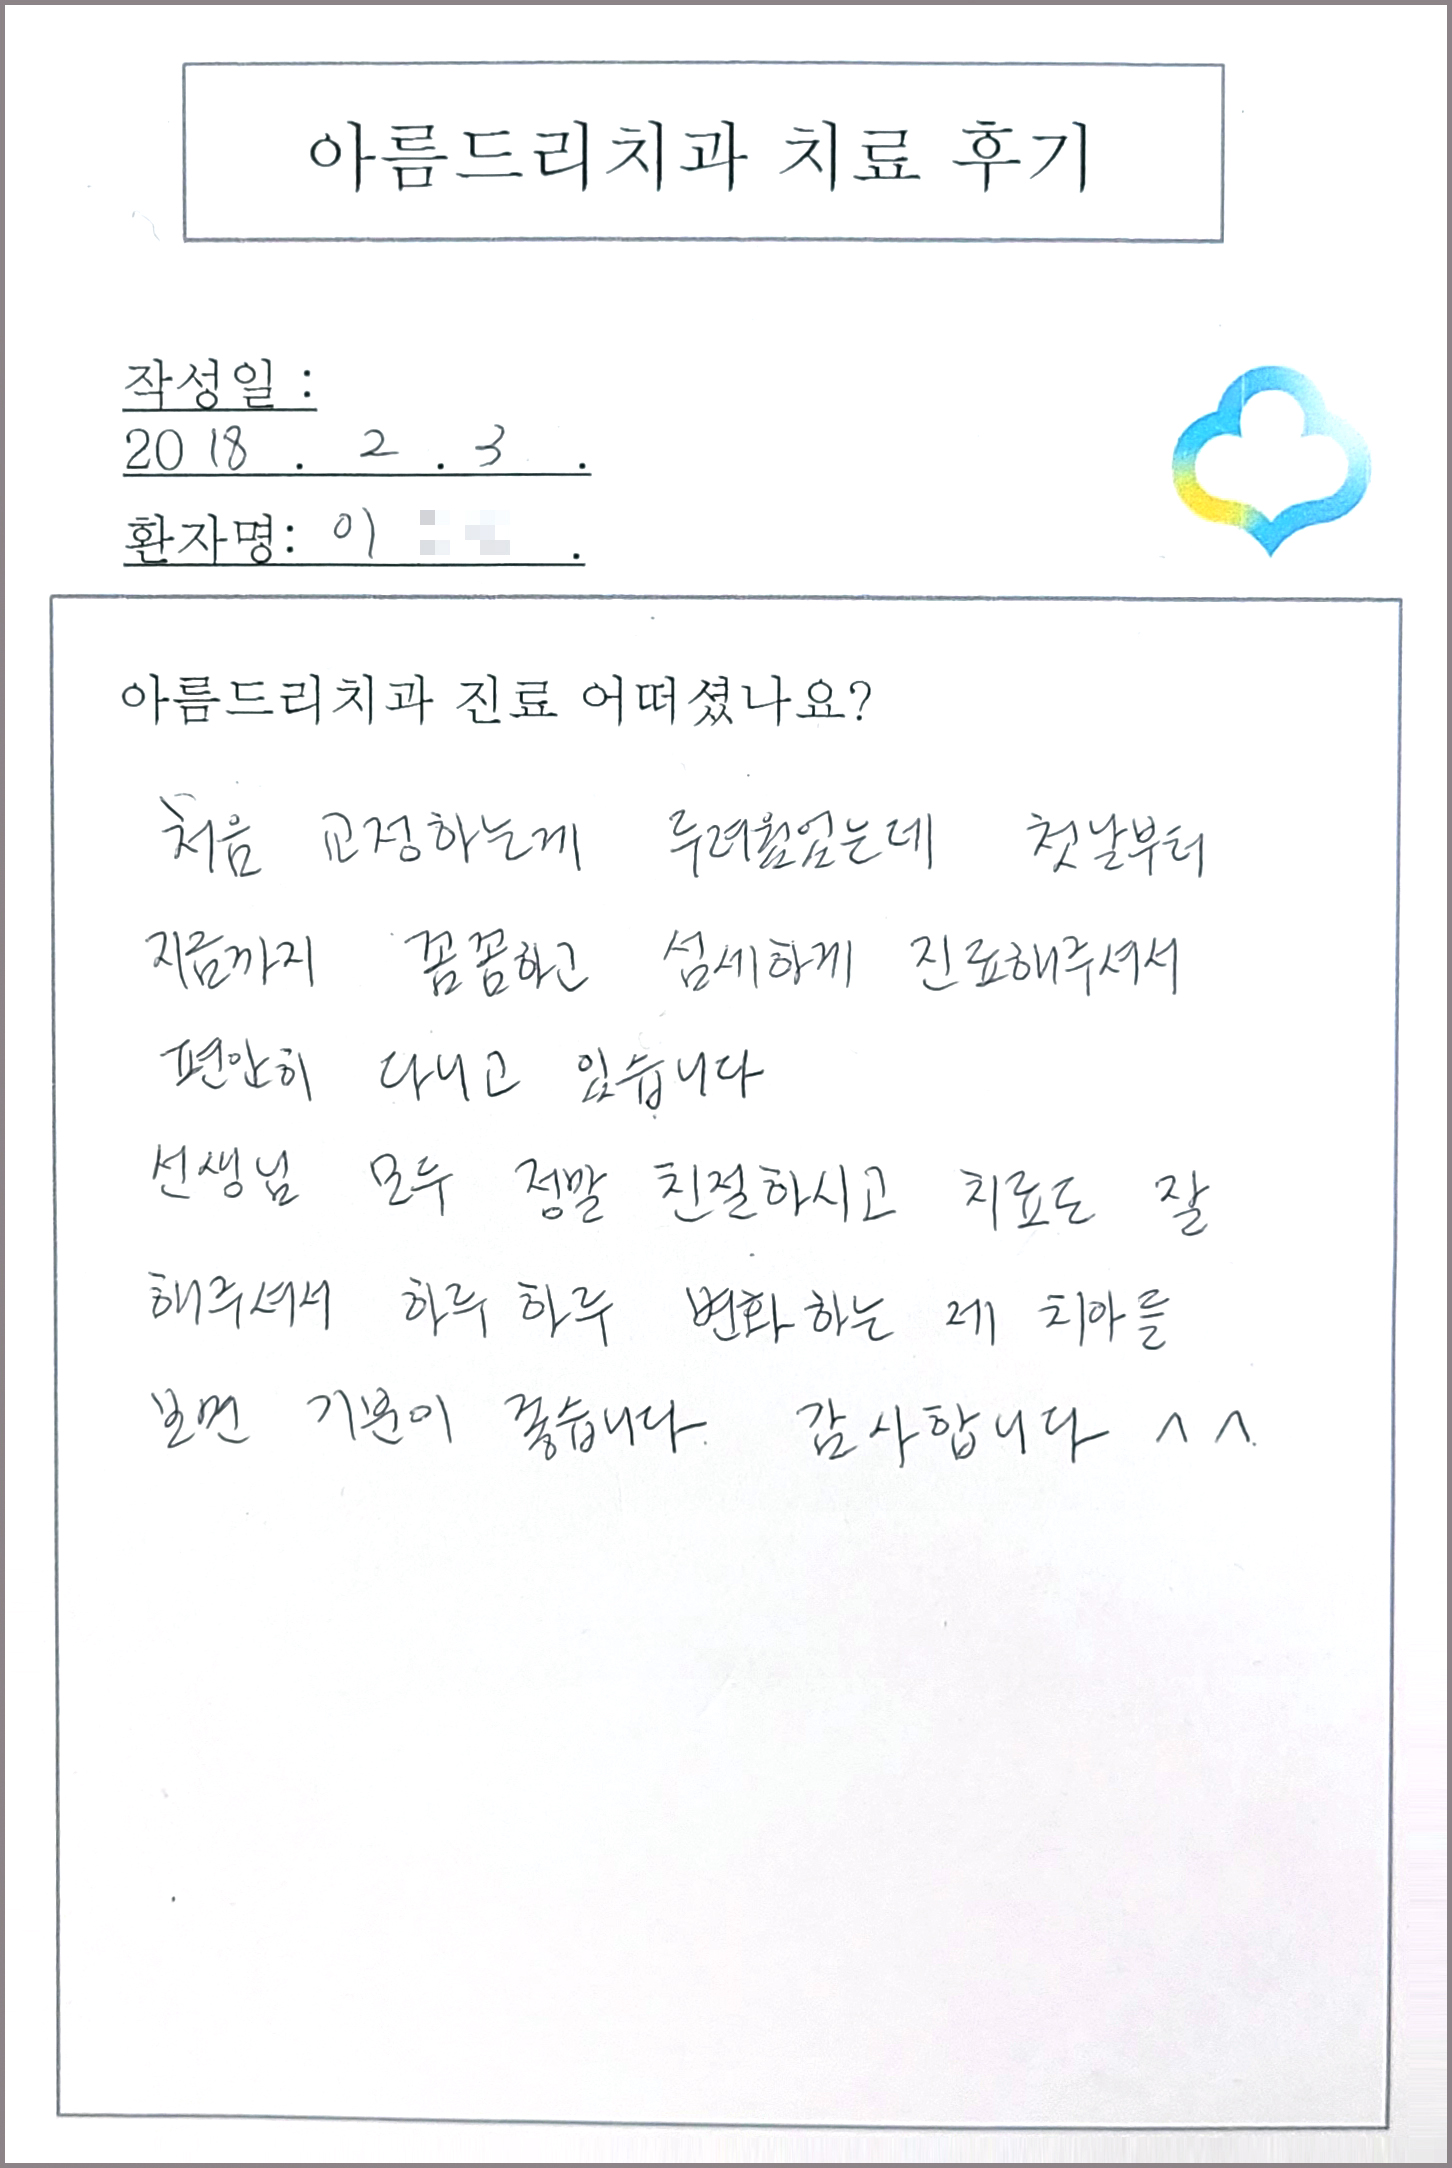 아름드리치과 치료 후기
작성일 :
2018 . 2 . 3 .
환자명: 이 .
아름드리치과 진료 어떠셨나요?
처음 교정하는게 두려웠었는데 첫날부터
지금까지 꼼꼼하고 섬세하게 진료해주셔서
편안히 다니고 있습니다
선생님 모두 정말 친절하시고 치료도 잘
해주셔서 하루하루 변화하는 제 치아를
보면 기분이 좋습니다. 감사합니다 ^^